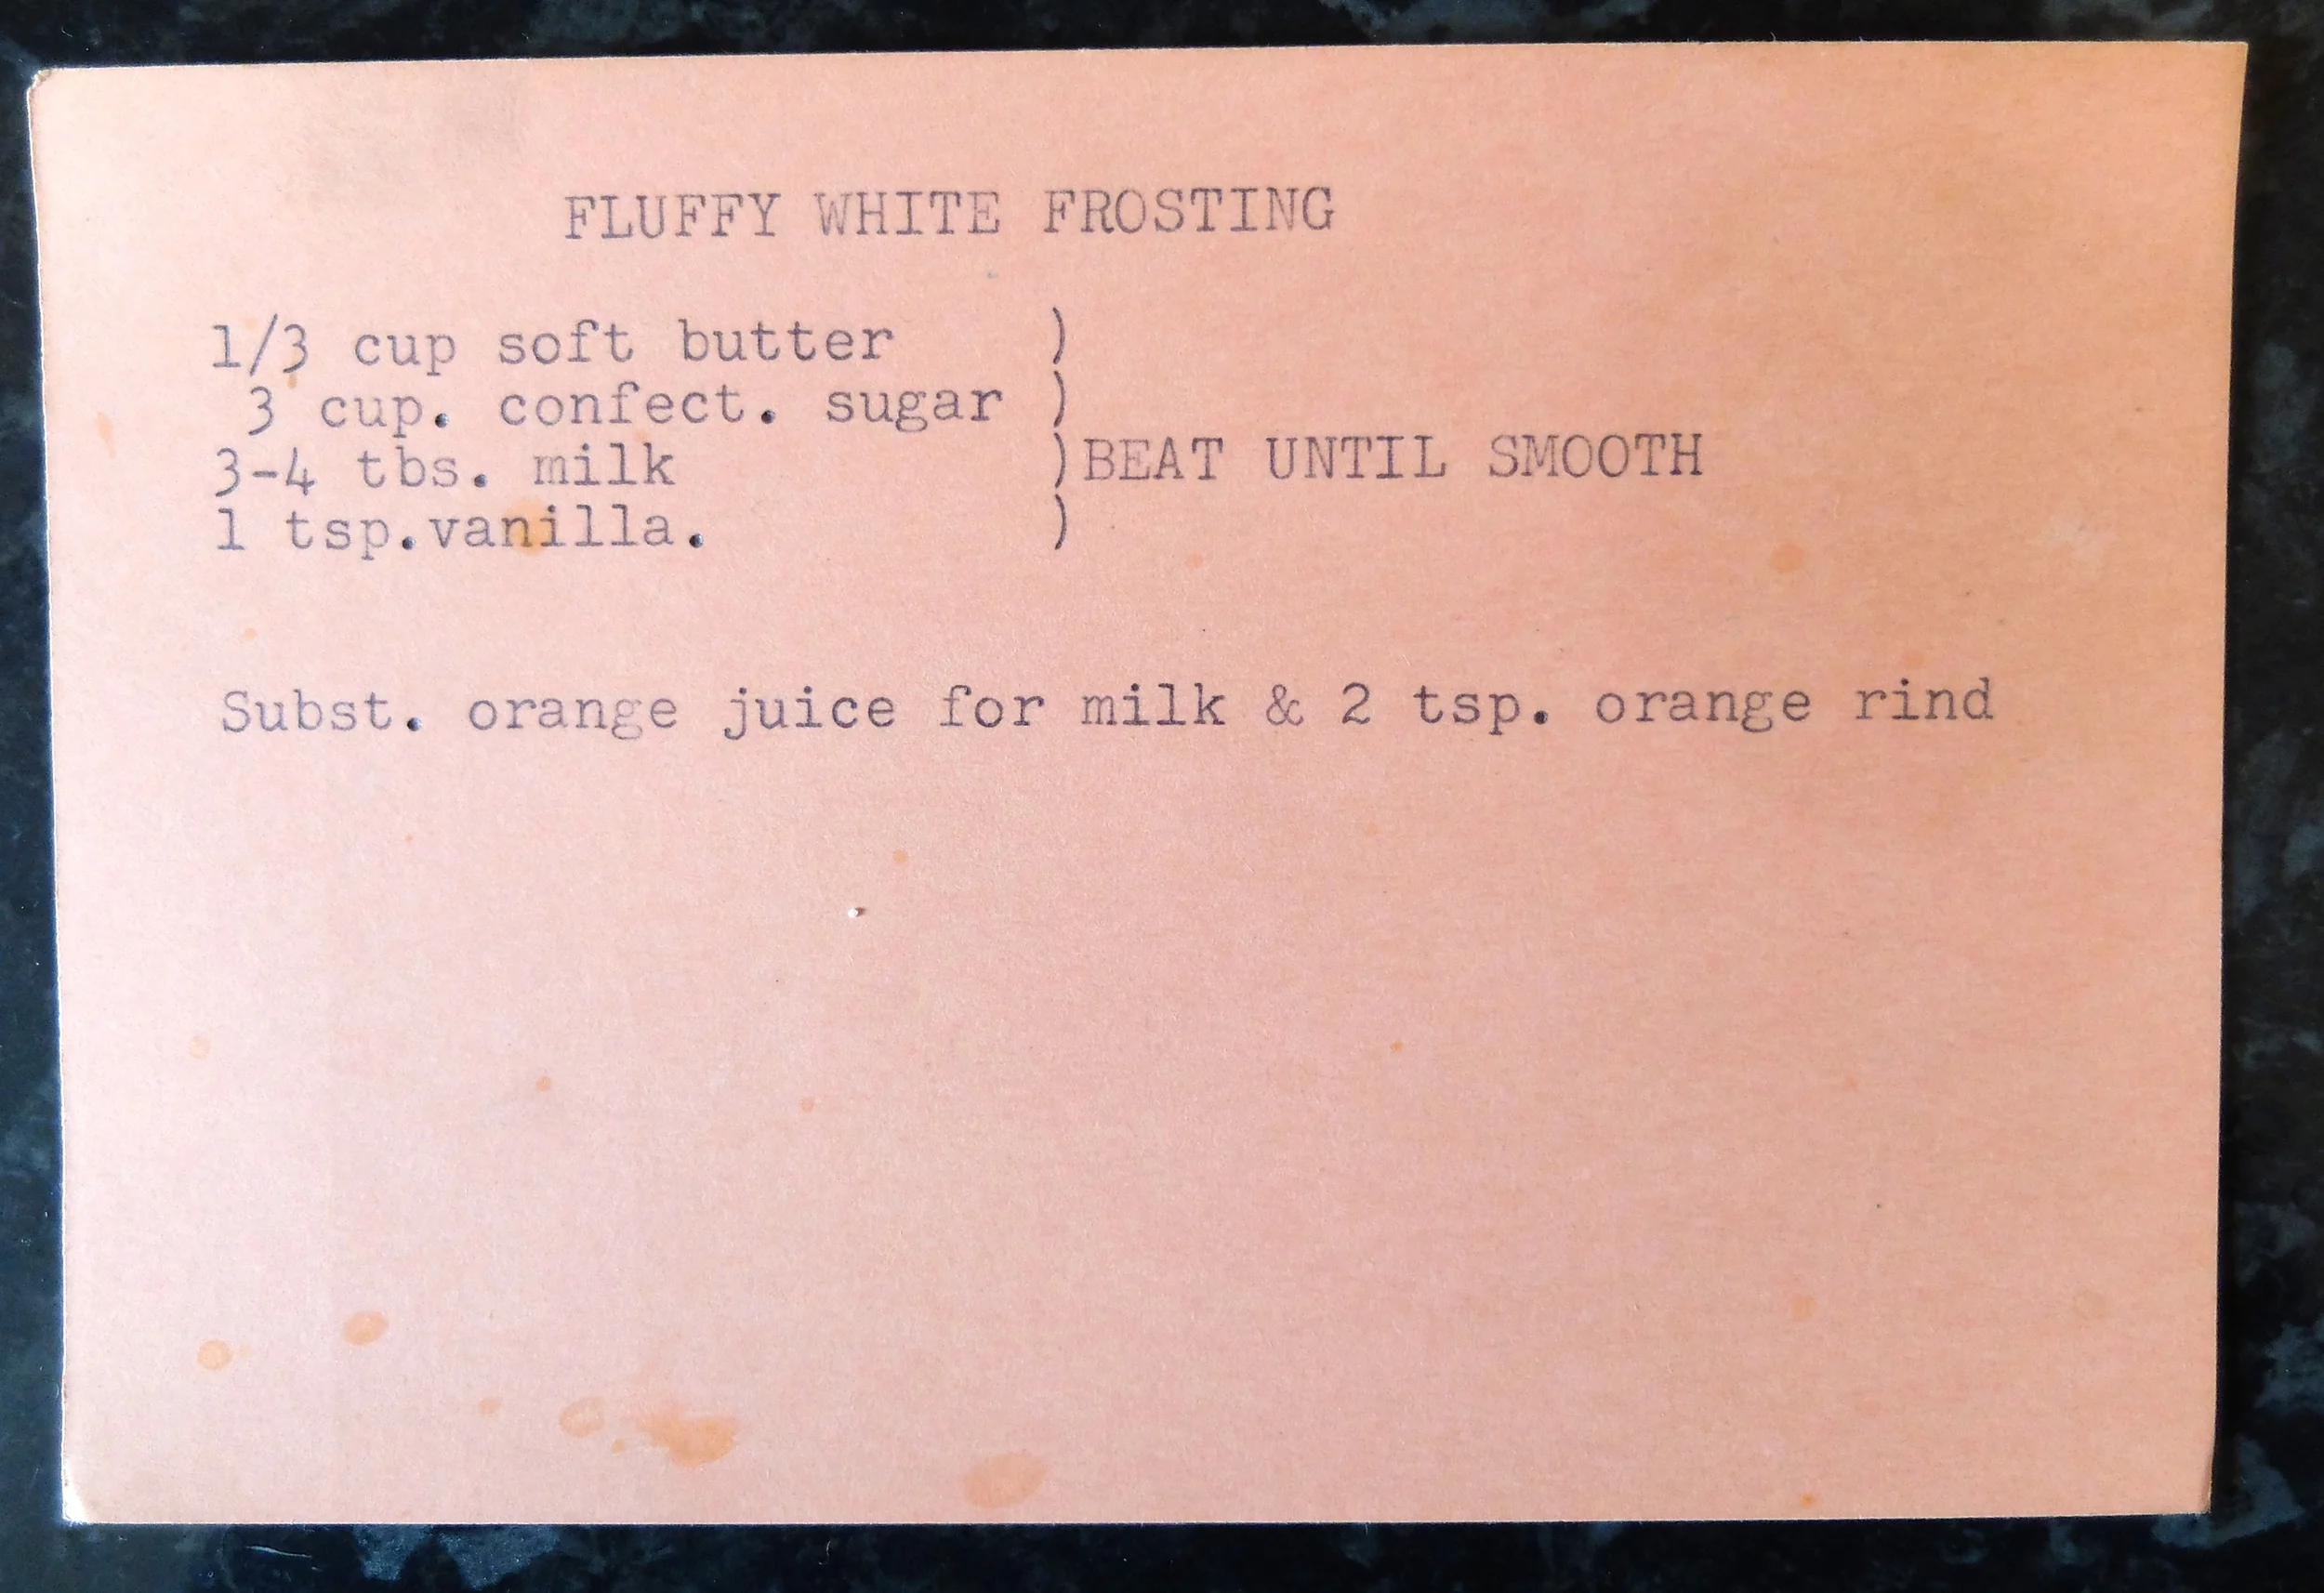 FLUFFY WHITE FROSTING
1/3 cup soft butter )
3 cup. confect. sugar )
3-4 tbs. milk )BEAT UNTIL SMOOTH
1 tsp.vanilla. )
Subst. orange juice for milk & 2 tsp. orange rind